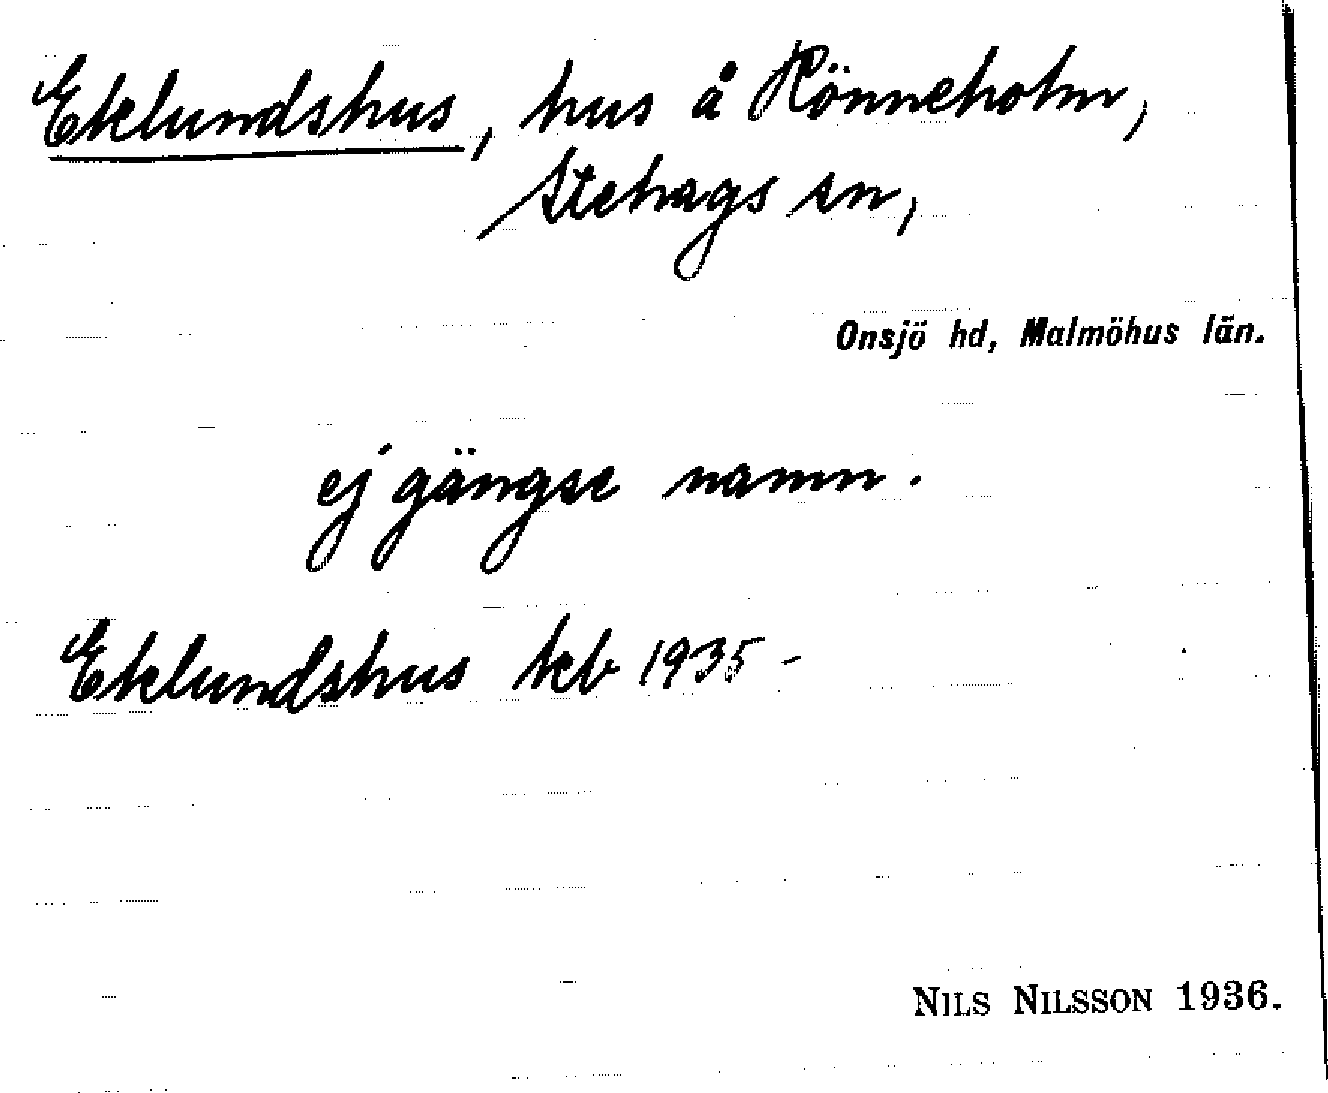 Eklundshus, hus å Rönneholm,
Stehags sn,
Onsjö hd, Malmöhus län.
ej gängse namn.
Eklundshus kb 1935-
NILS NILSSON 1936.